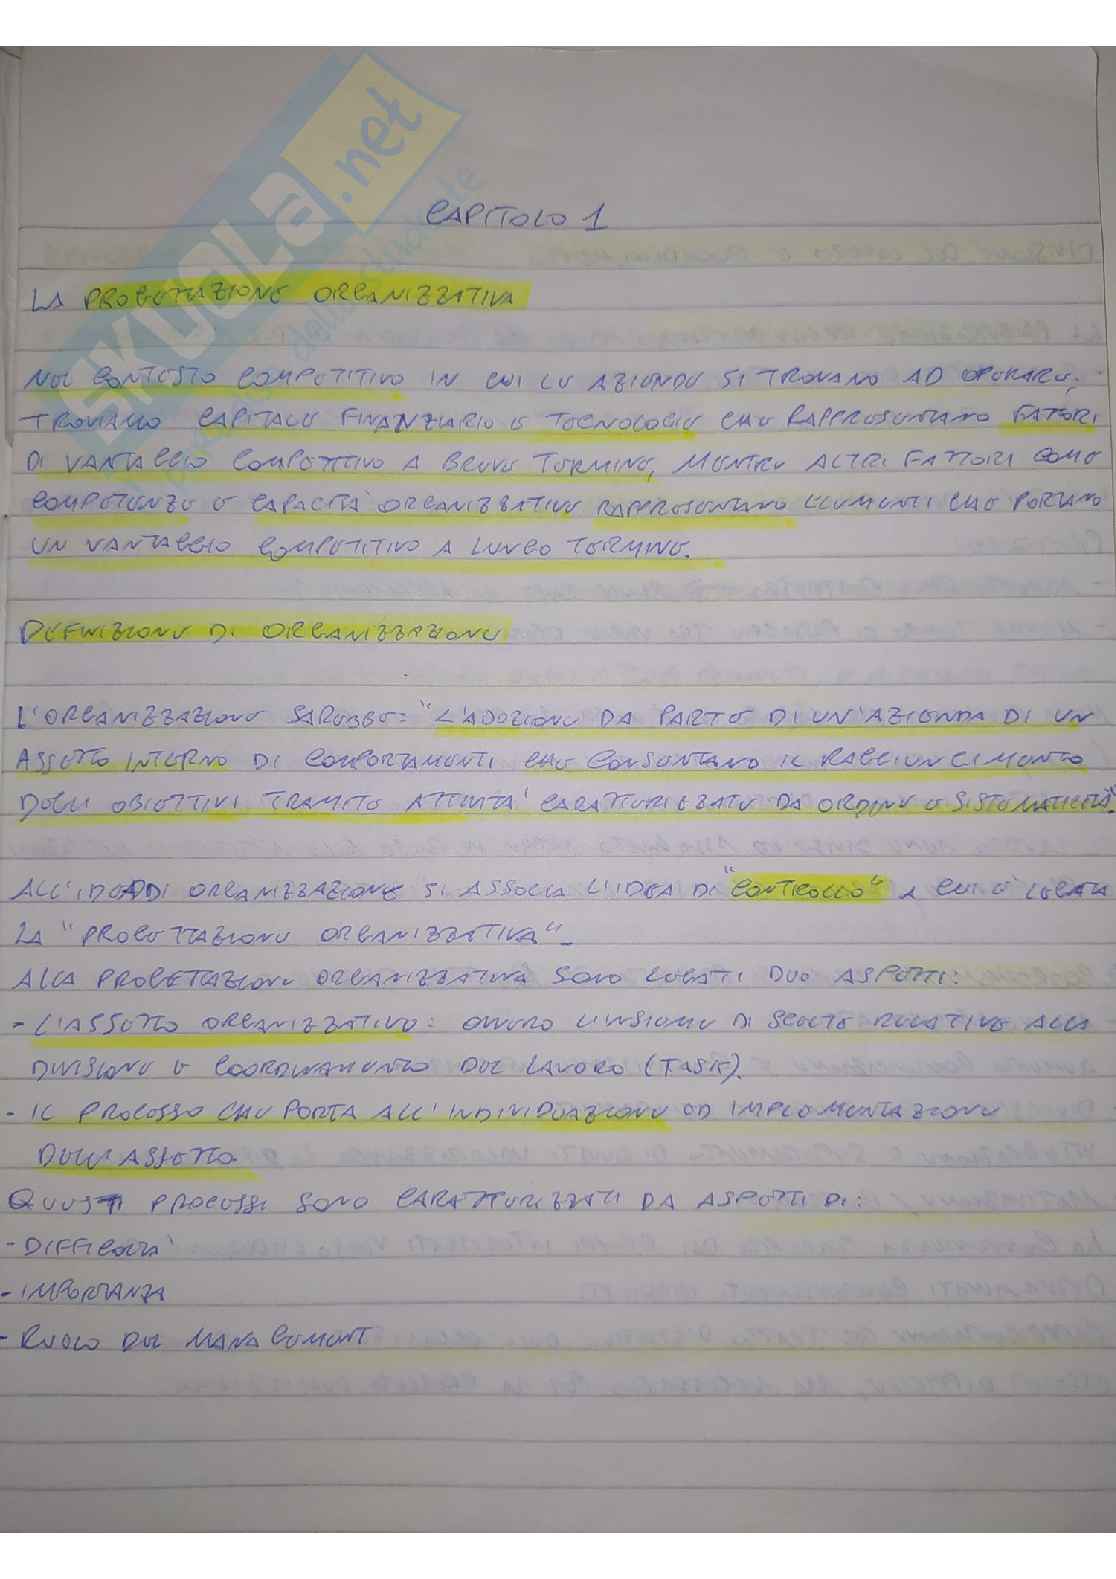 SKUOLA.net
CAPITOLO 1
LA PROGETTAZIONE ORGANIZZATIVA
NEL CONTESTO COMPETITIVO IN CUI LE AZIENDE SI TROVANO AD OPERARE,
TROVIAMO CAPITALE FINANZIARIO E TECNOLOGIE CHE RAPPRESENTANO FATTORI
DI VANTAGGIO COMPETITIVO A BREVE TERMINE, MENTRE ALTRI FATTORI COME
COMPETENZE E CAPACITÀ ORGANIZZATIVE RAPPRESENTANO ELEMENTI CHE PORTANO
UN VANTAGGIO COMPETITIVO A LUNGO TERMINE.
DEFINIZIONE DI ORGANIZZAZIONE
L'ORGANIZZAZIONE SAREBBE: "L'ADOZIONE DA PARTE DI UN'AZIENDA DI UN
ASSETTO INTERNO DI COMPORTAMENTI CHE CONSENTANO IL RAGGIUNGIMENTO
DEGLI OBIETTIVI TRAMITE ATTIVITÀ CARATTERIZZATE DA ORDINE E SISTEMATICITÀ".
ALL'IDEA DI ORGANIZZAZIONE SI ASSOCIA L'IDEA DI "CONTROLLO" A CUI È LEGATA
LA "PROGETTAZIONE ORGANIZZATIVA".
ALLA PROGETTAZIONE ORGANIZZATIVA SONO LEGATI DUE ASPETTI:
- L'ASSETTO ORGANIZZATIVO: OVVERO L'INSIEME DI SCELTE RELATIVE ALLA
DIVISIONE E COORDINAMENTO DEL LAVORO (TASK).
- IL PROCESSO CHE PORTA ALL'INDIVIDUAZIONE ED IMPLEMENTAZIONE
DELL'ASSETTO
QUESTI PROCESSI SONO CARATTERIZZATI DA ASPETTI DI:
- DIFFICOLTÀ
- IMPORTANZA
- RUOLO DEL MANAGEMENT